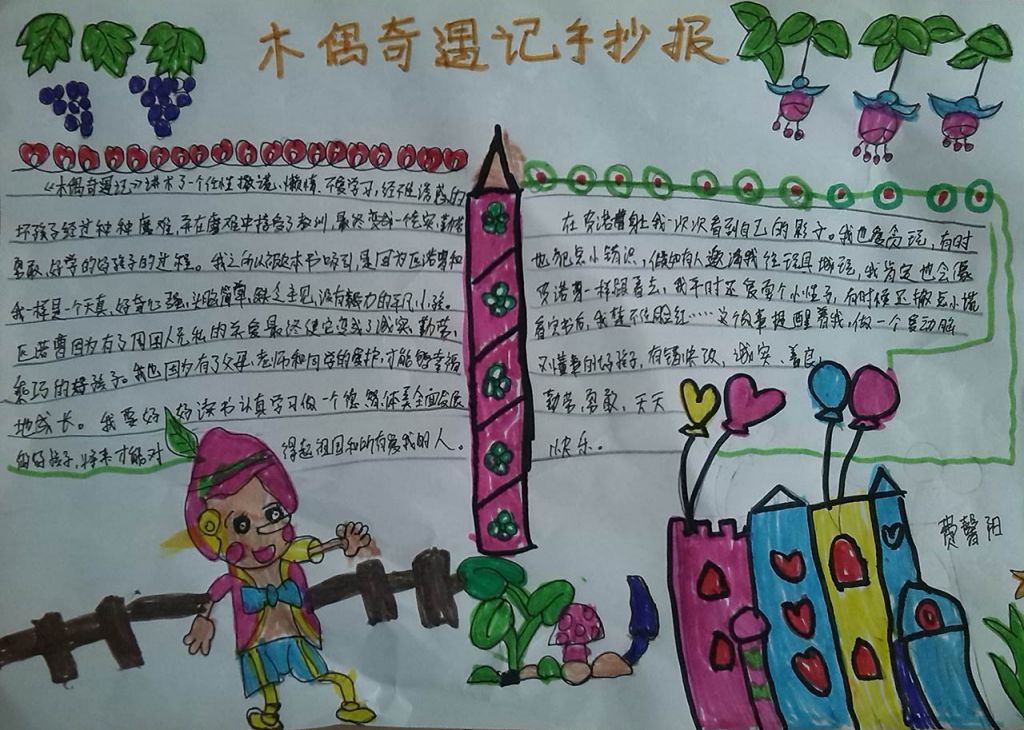 木偶奇遇记手抄报
《木偶奇遇记》讲了一个任性、撒谎、懒惰、不爱学习、经不住诱惑的
坏孩子经过种种磨难,并在磨难中接受了教训,最终变到一个诚实、勤劳
勇敢、好学的好孩子的过程。我之所以被本书吸引,是因为匹诺曹和
我一样是一个天真、好奇心强、头脑简单、缺乏主见、没有毅力的平凡小孩。
匹诺曹因为有了周围人无私的关爱最终使它变成了诚实、勤劳、
乖巧的好孩子。我也因为有了父母、老师和同学的爱护,才能够幸福
地成长。我要好好读书认真学习做一个德、智、体、美全面发展
的好孩子,将来才能对得起祖国和所有爱我的人。
在匹诺曹身上我一次次看到自己的影子。我也爱贪玩,有时
也犯点小错误,假如有人邀请我往玩具城玩,我肯定也会像
匹诺曹一样跟着去,我平时还爱耍个小性子,有时候还撒点小谎
看完书后,我禁不住脸红……这个故事提醒着我,做一个爱动脑
又懂事的好孩子,有错就改、诚实、善良、
勤劳、勇敢、天天
快乐。
费馨阳